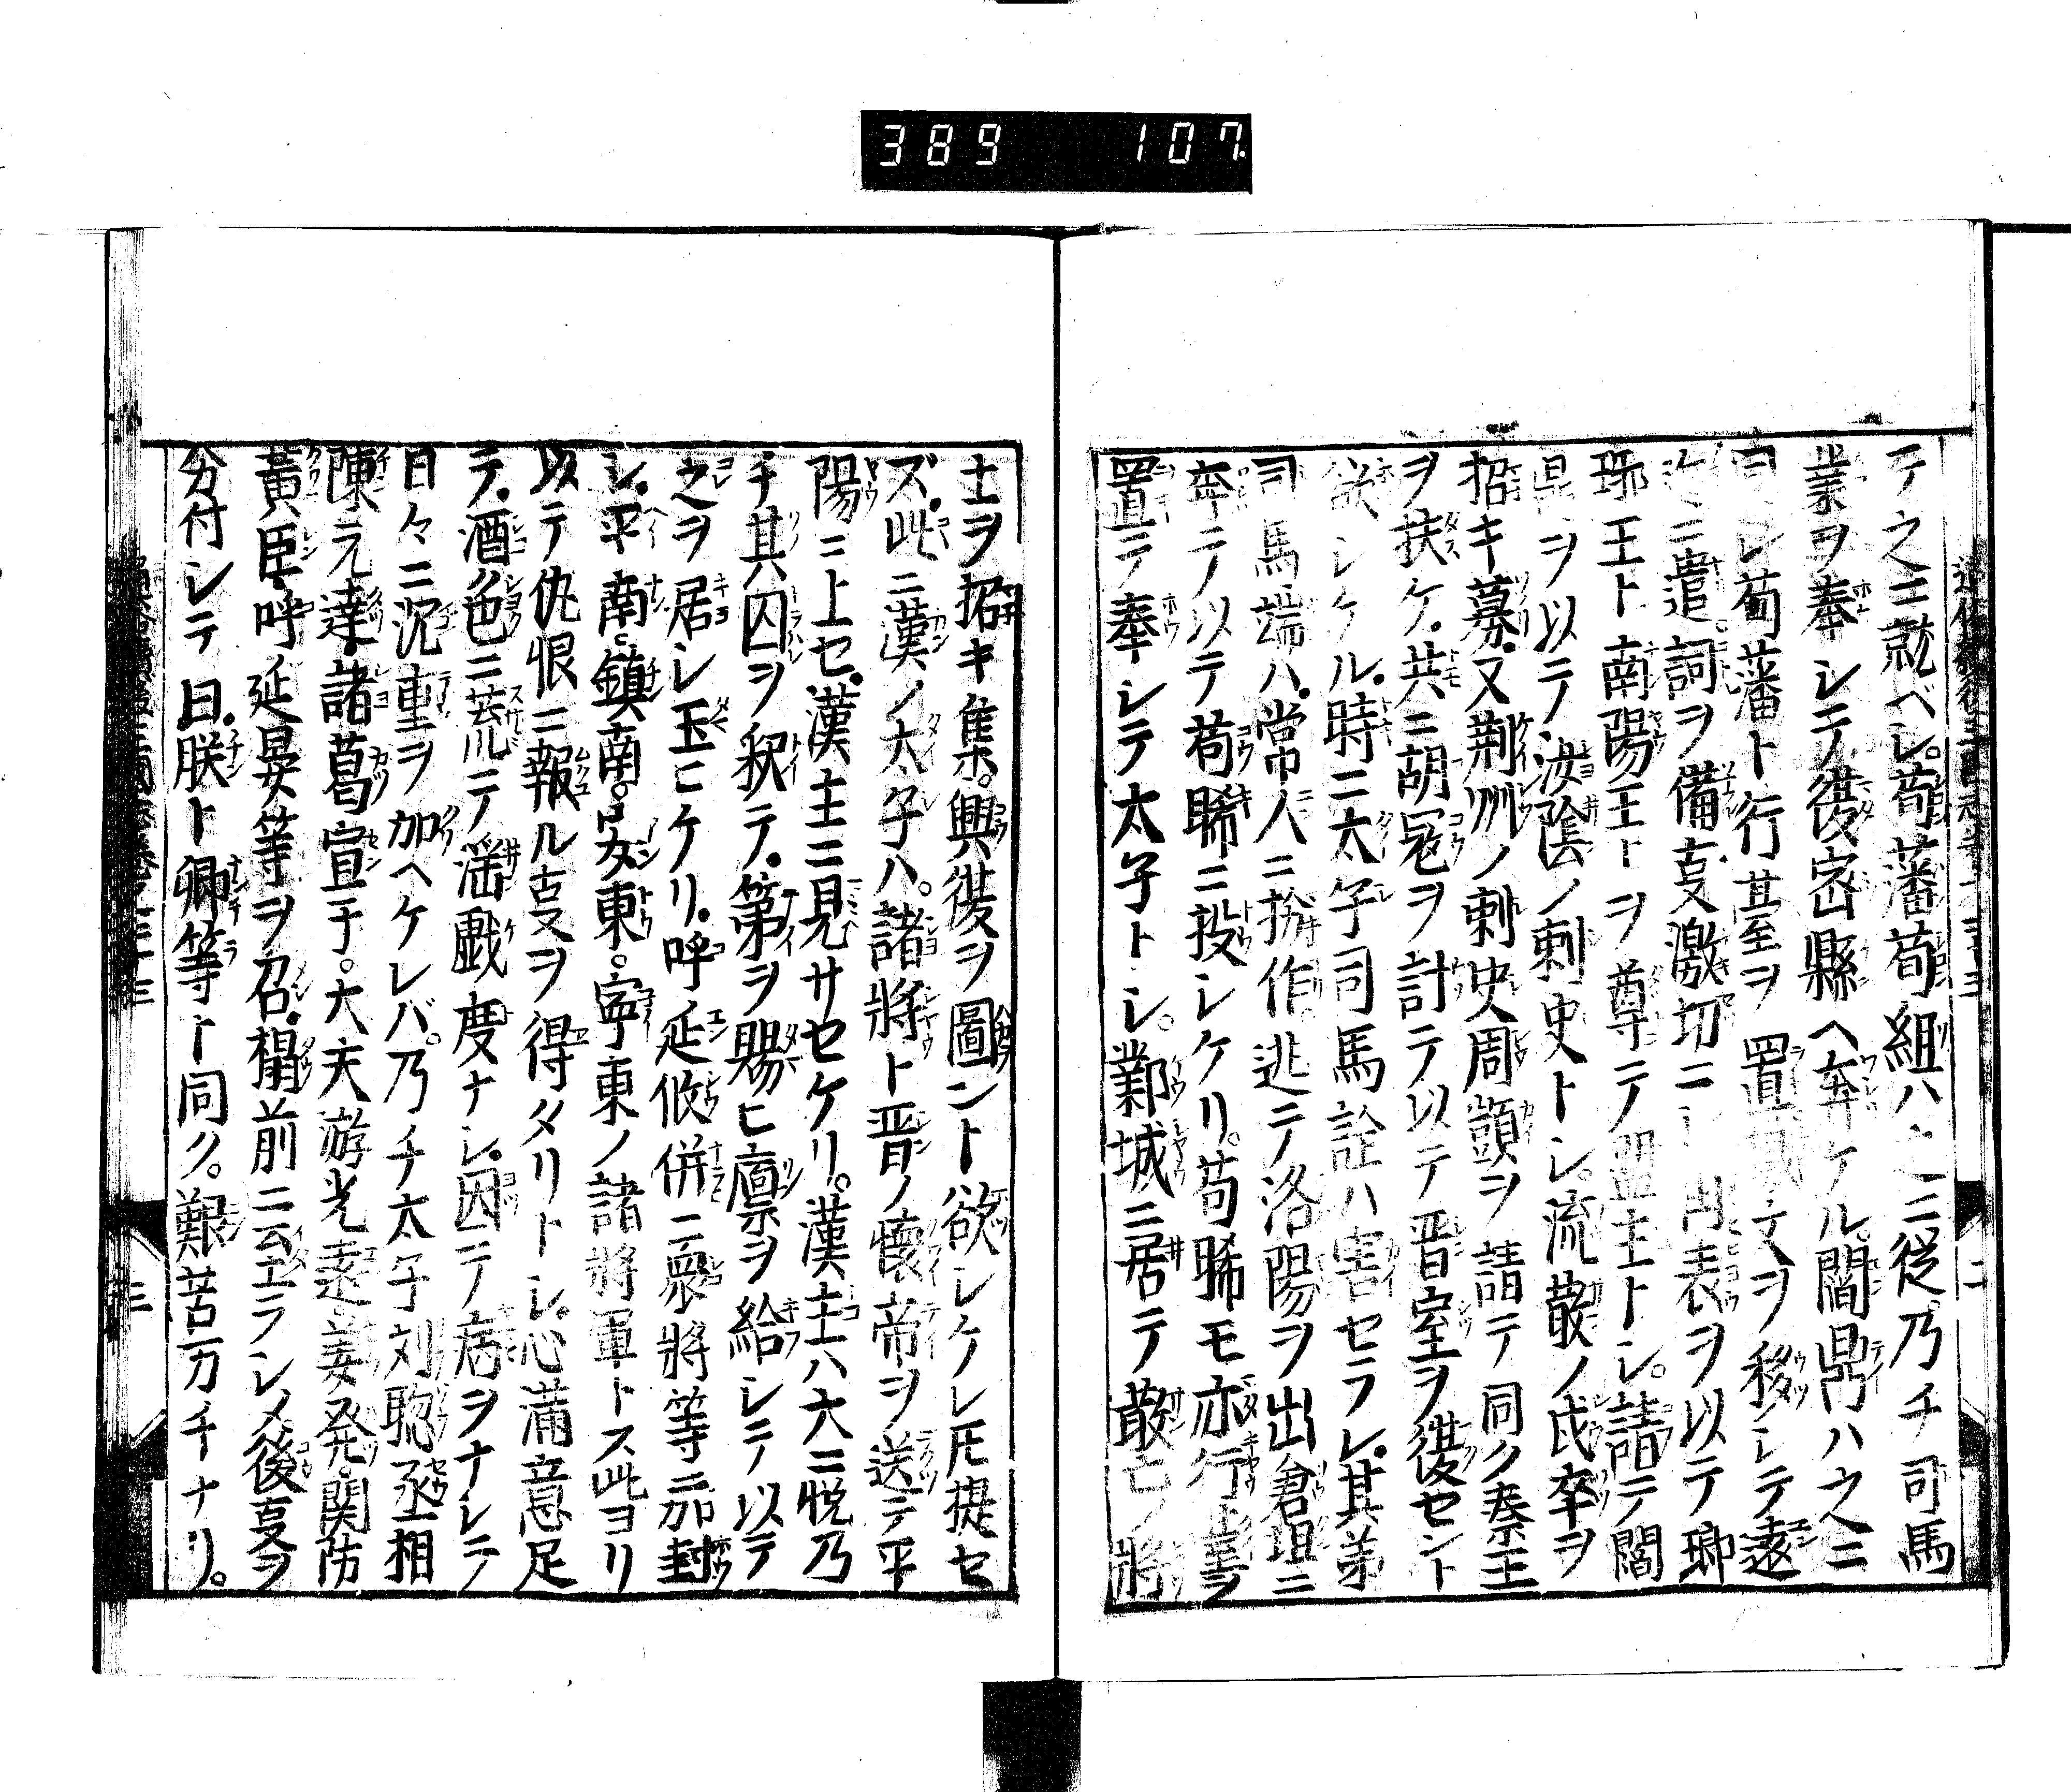 389 107
テ之ニ就ベシ。荀藩荀組ハ之ニ從。乃チ司馬
業ヲ奉シテ復密縣ヘ奔ケル。閻鼎ハ之ニ
荀藩ト行䑓ヲ置檄文ヲ移シテ遠
ニ遣。詞ヲ備亥激切ニ 表ヲ以テ瑯
琊王ト南陽王トヲ尊テ盟主トシ。請テ閻
鼎ヲ以テ汝陰ノ刺史トシ。流散ノ戍卒ヲ
招キ募。又荆州ノ刺史周顗ヲ請テ同ク秦王
ヲ扶ケ。共ニ胡冦ヲ計テ以テ晋室ヲ復セント
欲シケル。時ニ太子司馬詮ハ害セラレ。其弟
司馬端ハ。常人ニ扮作。逃テ洛陽ヲ出倉垣ニ
奔テ以テ荀晞ニ投シケリ。荀晞モ亦行䑓ヲ
置テ奉シテ太子トシ。鄴城ニ居テ散亡ノ將
士ヲ招キ集。興復ヲ圖ント欲シケレ𪜈捷セ
ズ。此ニ漢ノ太子ハ。諸將ト晋ノ懷帝ヲ送テ平
陽ニ上セ。漢主ニ見サセケリ。漢主ハ大ニ悦乃
チ其囚ヲ釈テ。第ヲ賜ヒ廪ヲ給シテ以テ
之ヲ居シ玉ヒケリ。呼延攸併ニ衆將等ニ加封
シ。平南。鎮南。安東。寧東ノ諸將軍トス此ヨリ
以テ仇恨ニ報ル亥ヲ得タリトシ。心滿意足
テ。酒色ニ荒テ淫戯度ナシ。因テ病ヲナシテ
日々ニ沉重ヲ加ヘケレバ。乃チ太子刘聡丞相
陳元達。諸葛宣于。大夫游光遠。姜発。関防
黄臣。呼延晏等ヲ召。榻前ニ至ラシメ。後亥ヲ
分付シテ曰。朕ト卿等ト同ク。艱苦万チナリ。
三